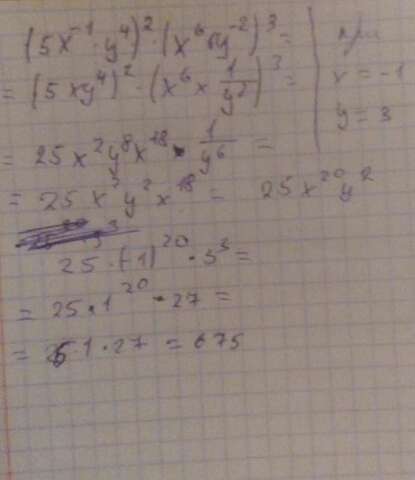 (5x⁻¹·y⁴)²·(x⁶y⁻²)³=
= (5xy⁴)²·(x⁶×1/y²)³=
= 25x²y⁸x¹⁸·1/y⁶=
= 25x²y²x¹⁸= 25x²⁰y²
25·(-1)²⁰·3³=
= 25·1²⁰·27=
= 25·1·27=675
при
x=-1
y=3